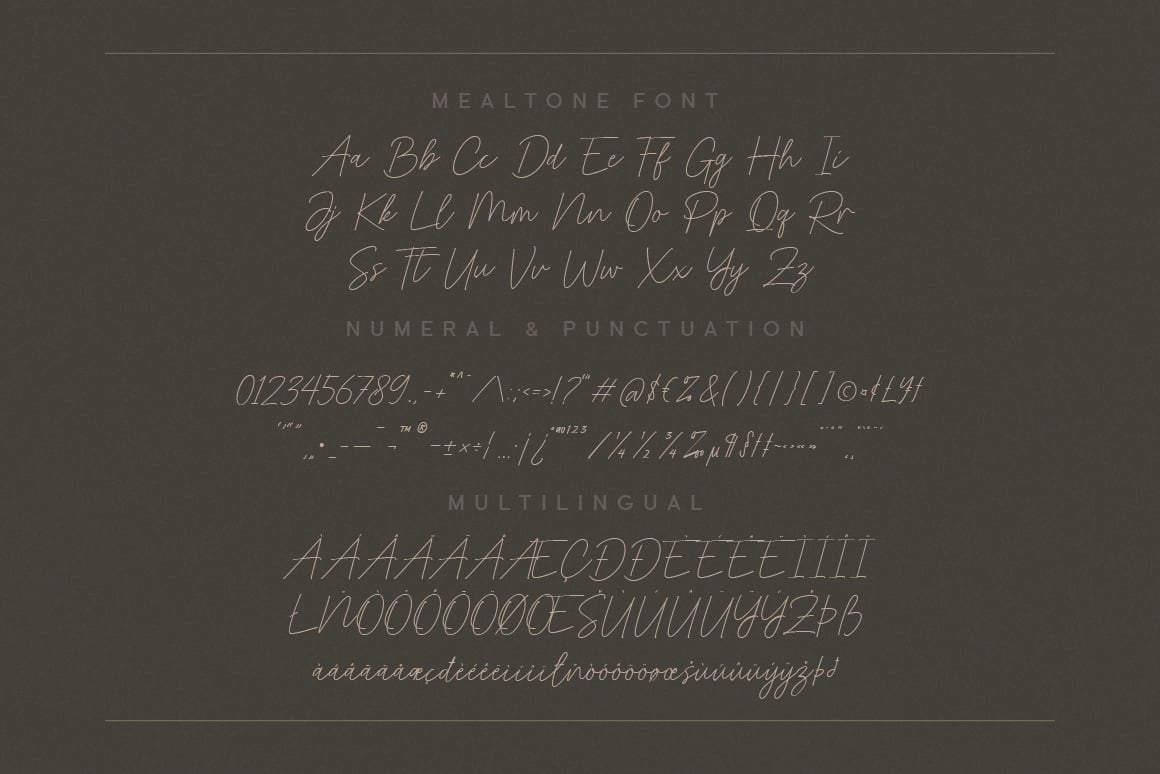 MEALTONE FONT
Aa Bb Cc Dd Ee Ff Gg Hh Ii
Jj Kk Ll Mm Nn Oo Pp Qq Rr
Ss Tt Uu Vv Ww Xx Yy Zz
NUMERAL & PUNCTUATION
0123456789.,-+*^~/\:;<=>!?'"#@$€%&(){|}[]©¤¢£¥ƒ
‚„•_–—¯¬™®−±×÷¦…·¡¿ºª0123⁄¼½¾‰µ¶§†‡~‹›«»
MULTILINGUAL
ÀÁÂÃÄÅÆÇĐÐÈÉÊËÌÍÎÏ
ŁÑÒÓÔÕÖØŒŠÙÚÛÜŸÝŽÞß
àáâãäåæçđèéêëìíîïłñòóôõöøœšùúûüýÿžþđ